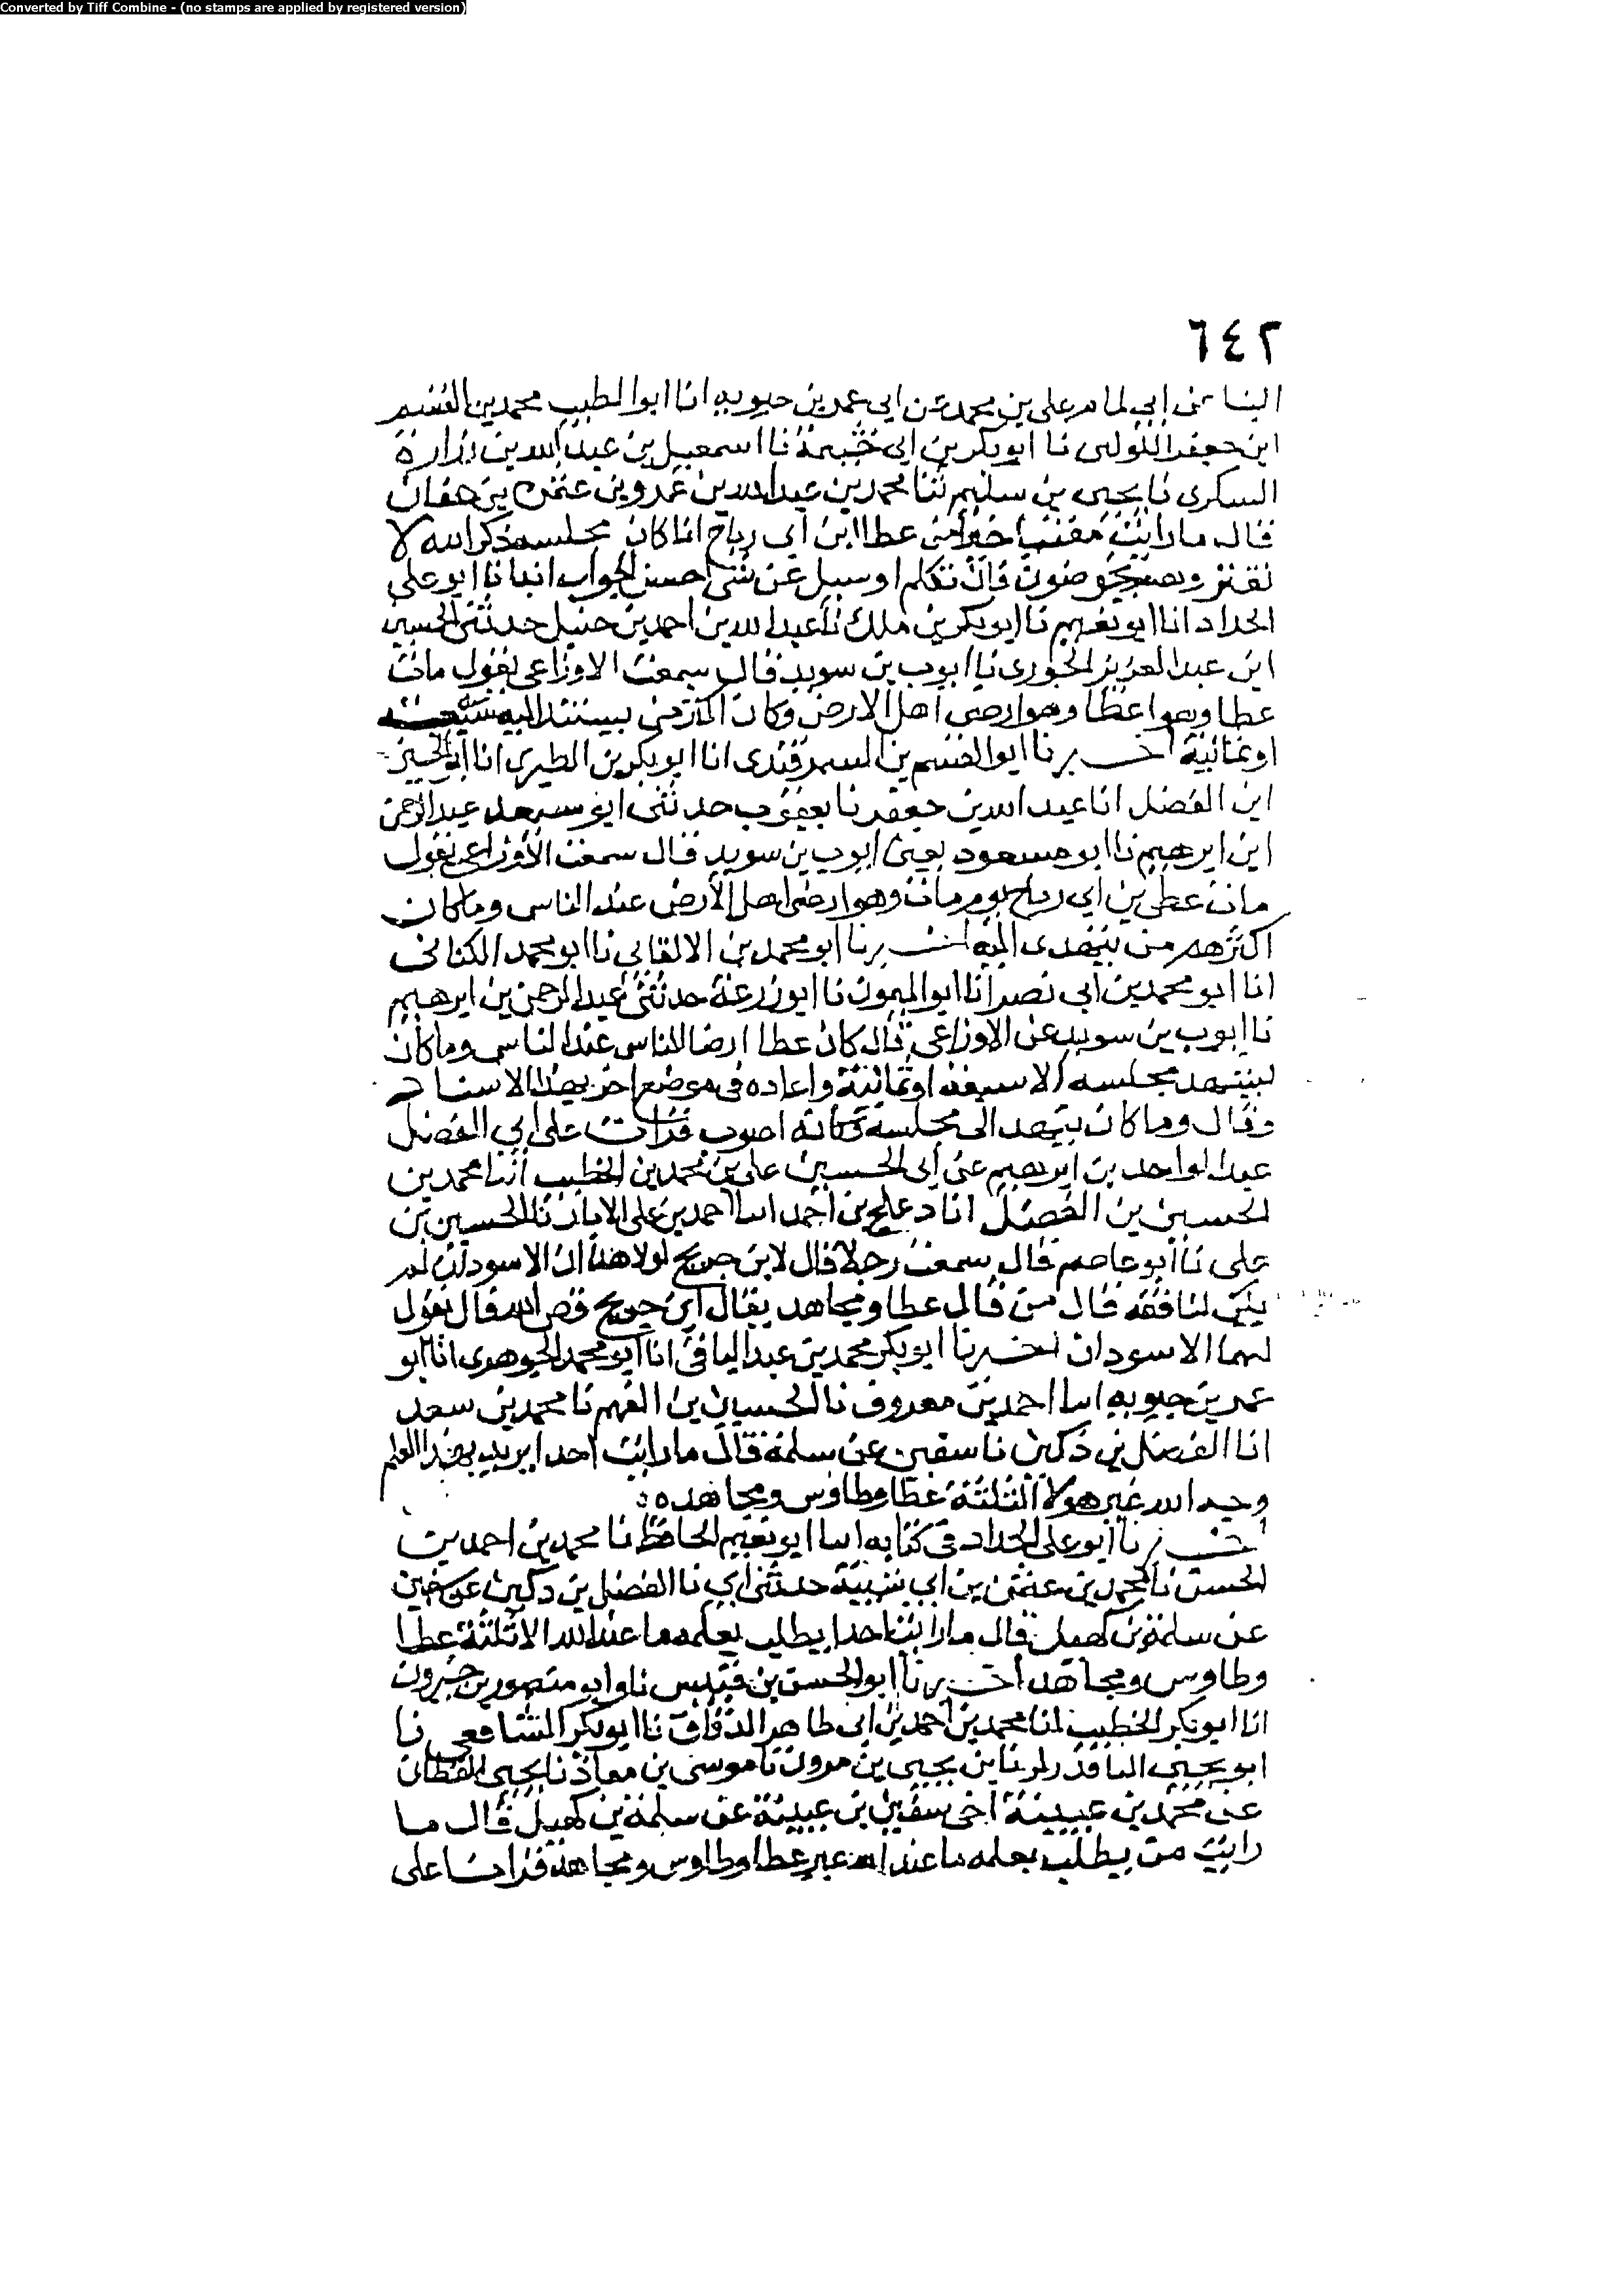 Converted by Tiff Combine - (no stamps are applied by registered version)
٦٤٢
البنا عن ابي علي بن محمد عن ابي عمر بن حيويه انا ابو الطيب محمد بن القسم
ابن جعفر نا ابو بكر بن ابي خثيمة نا اسمعيل بن عبد الله بن زرارة
السكرى نا يحيى بن سليم ثنا محمد بن عبد الله بن عمرو بن عثمن بن عفان
قال ما رايت مفتيا خيرا من عطا ابن ابي رباح انما كان مجلسه ذكر الله لا
يفتر وهم يخوضون فان تكلم او سيل عن شى احسن الجواب انبانا ابو علي
الحداد انا ابو نعيم نا ابو بكر بن ملك نا عبد الله بن احمد بن حنبل حدثنى الحسين
ابن عبد العزيز الجروى نا ايوب بن سويد قال سمعت الاوزاعى يقول مات
عطا وهو ارضى اهل الارض وكان اكثر من
او ثمانية اخبرنا ابو القسم بن السمرقندى انا ابو بكر بن الطبرى انا ابو الحسين
ابن الفضل انا عبد الله بن جعفر نا يعقوب حدثنى ابو سعيد عبد الرحمن
ابن ابرهيم نا ابو مسعود يعنى ايوب بن سويد قال سمعت الاوزاعى يقول
مات عطا بن ابي رباح يوم مات وهو ارضى اهل الارض عند الناس وما كان
اكثرهم من الى اخبرنا ابو محمد بن الاكفاني نا ابو محمد الكتانى
انا ابو محمد بن ابي نصر انا ابو الميمون نا ابو زرعة حدثنى عبد الرحمن بن ابرهيم
نا ايوب بن سويد عن الاوزاعى قال كان عطا ارضا الناس عند الناس وما كان
يشهد مجلسه الا سبعة او ثمانية واعاده فى موضع اخر بهذا الاسناد
وقال وما كان ينهد الى مجلسه وكانه اصوب قرات على ابي الفضل
عبد الواحد بن ابرهيم عن ابي الحسين علي بن محمد بن الخطيب انا محمد بن
الحسين بن الفضل انا دعلج بن احمد انا احمد بن على الابار نا الحسين بن
على نا ابو عاصم قال سمعت رجلا قال لابن جريج لولا هذان الاسودان لم
يكن لنا فقه قال من قال عطا ومجاهد فقال ابن جريج فض الله فاك تقول
لهما الاسودان اخبرنا ابو بكر محمد بن عبد الباقي انا ابو محمد الجوهرى انا ابو
عمر بن حيويه انا احمد بن معروف نا الحسين بن الفهم نا محمد بن سعد
انا الفضل بن دكين نا سفين عن سلمة قال ما رايت احدا يريد بهذا العلم
وجه الله غير هولا الثلثة عطا وطاوس ومجاهد
اخبرنا ابو على الحداد فى كتابه انا ابو نعيم الحافظ نا محمد بن احمد بن
الحسن نا محمد بن عثمن بن ابي شيبة حدثنى ابي نا الفضل بن دكين عن سفين
عن سلمة بن كهيل قال ما رايت احدا يطلب بعلمه ما عند الله الا ثلثة عطا
وطاوس ومجاهد اخبرنا ابو الحسن بن قبيس نا وابو منصور بن خيرون
انا ابو بكر الخطيب انا محمد بن احمد بن ابى طاهر الدقاق نا ابو بكر الشافعى نا
ابو يحيى الناقد زكريا بن يحيى بن مرون نا موسى بن معاذ نا يحيى القطان
عن محمد بن عيينة اخى سفين بن عيينة عن سلمة بن كهيل قال ما
رايت من يطلب بعلمه ما عند الله غير عطا وطاوس ومجاهد قرات على